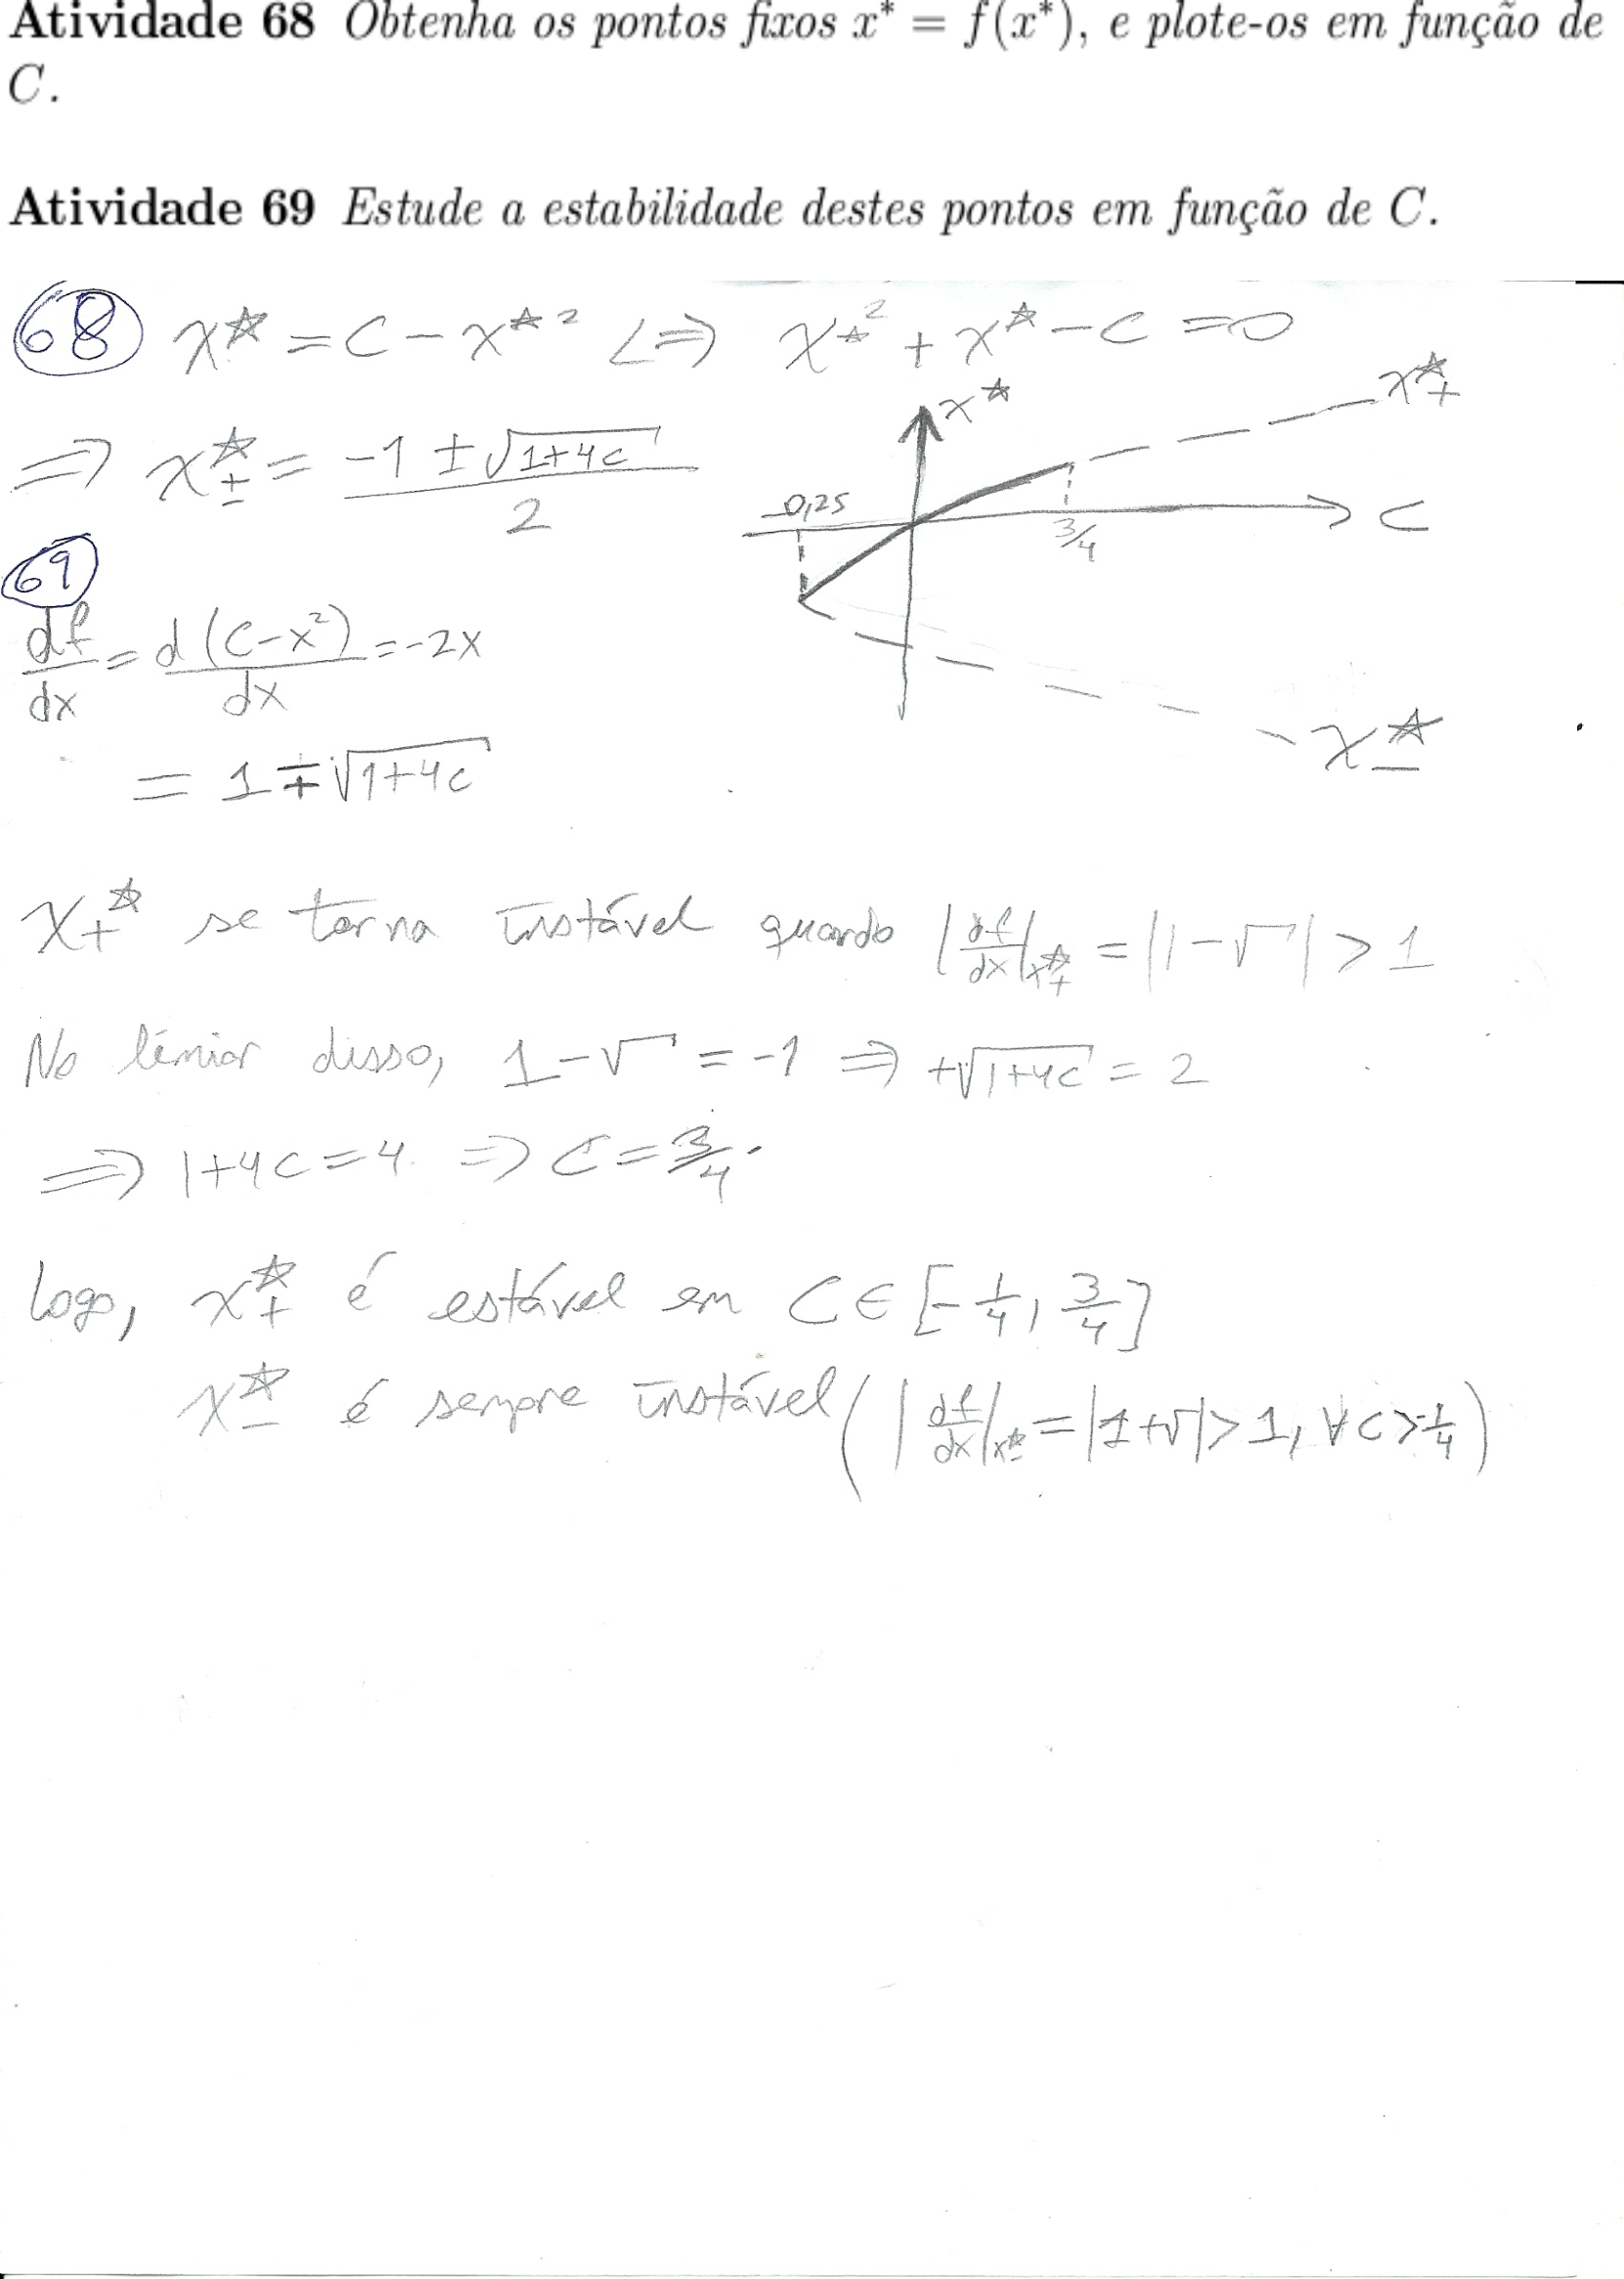 Atividade 68 Obtenha os pontos fixos x* = f(x*), e plote-os em função de
C.
Atividade 69 Estude a estabilidade destes pontos em função de C.
68 x* = C - x*² <=> x*² + x* - C = 0
=> x*± = (-1 ± √(1+4C))/2
x*
x*+
-0,25
3/4
C
x*-
69
df/dx = d(C-x²)/dx = -2x
= 1 ∓ √(1+4C)
x+* se torna instável quando |df/dx|x*+ = |1-√ | > 1
No limiar disso, 1-√ = -1 => +√(1+4C) = 2
=> 1+4C = 4 => C = 3/4.
Logo, x*+ é estável em C ∈ [-1/4, 3/4]
x*- é sempre instável (|df/dx|x*- = |1+√| > 1, ∀ C > -1/4)